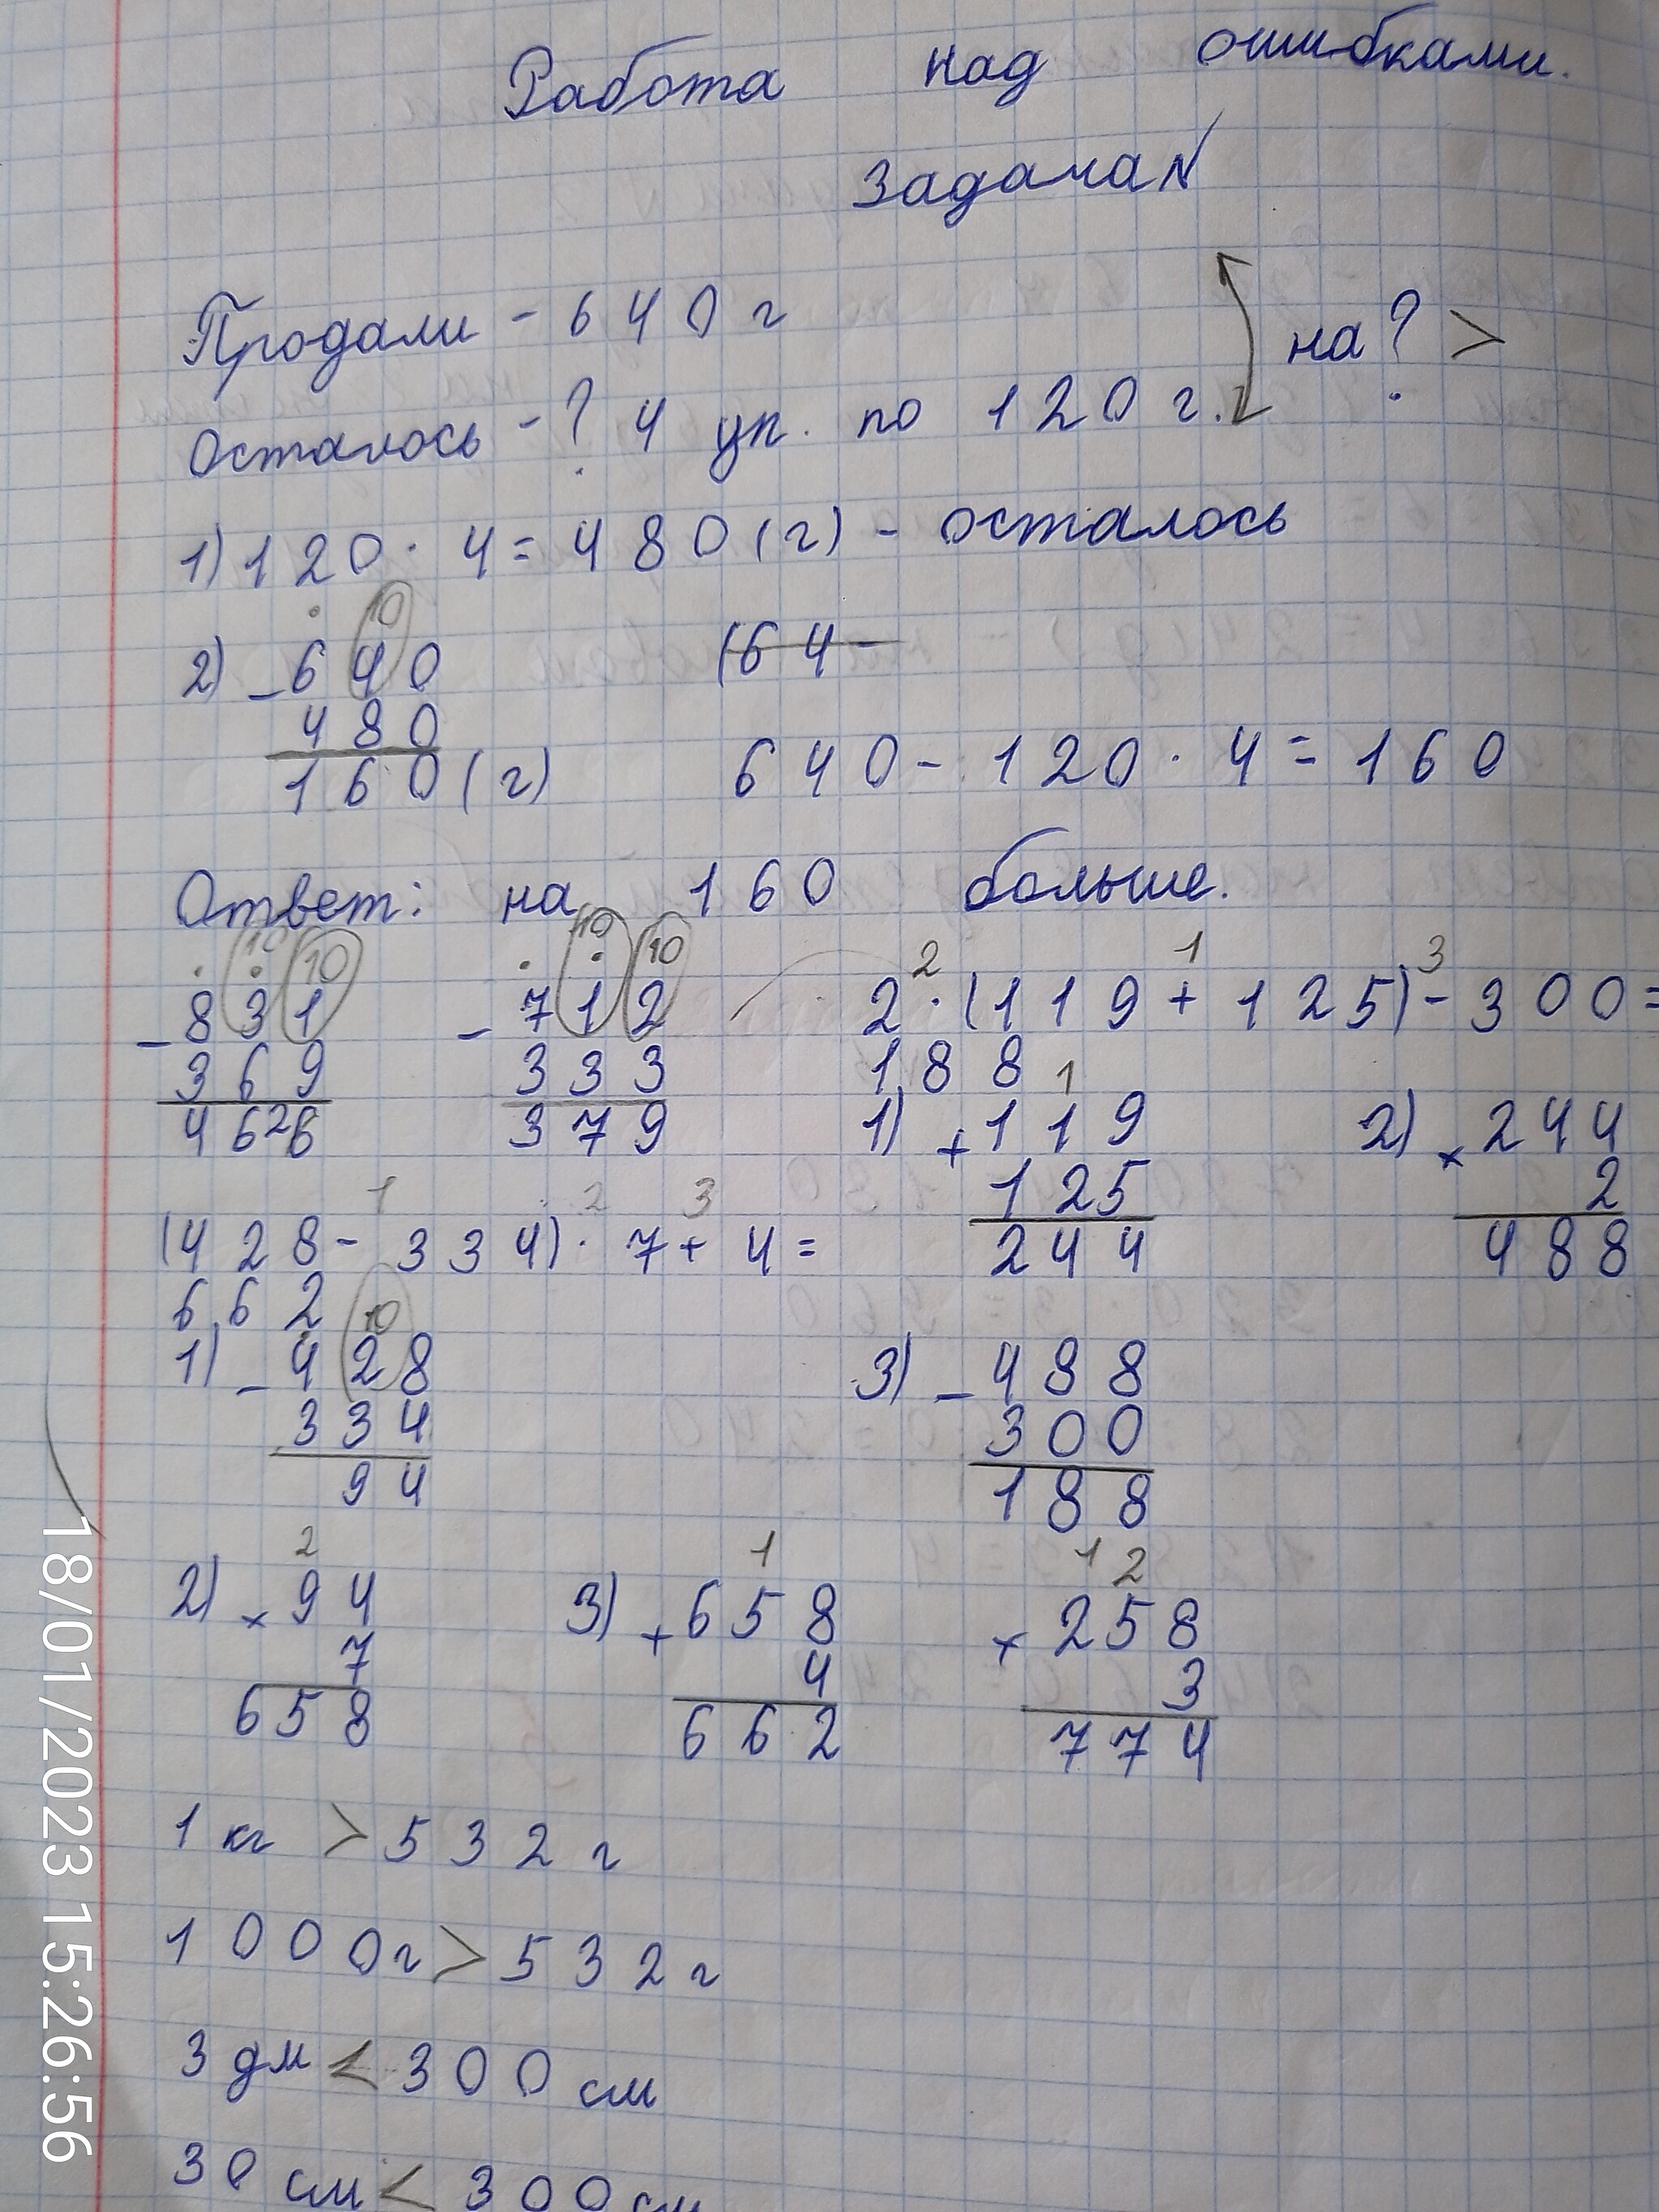 Работа над ошибками.
Задача №
Продали - 640 г
на ? >
Осталось - ? 4 уп. по 120 г.
1) 120 · 4 = 480 (г) - осталось
10
2) - 640
480
160 (г)
(64 -
640 - 120 · 4 = 160
Ответ: на 160 больше.
10 10
- 831
369
4626
10 10
- 712
333
379
2 1 3
2 · (119 + 125) - 300 =
188
1
1) + 119
125
244
2) × 244
2
488
3) - 488
300
188
1 2 3
(428 - 334) · 7 + 4 =
662
10
1) - 428
334
94
2
2) × 94
7
658
1
3) + 658
4
662
1 2
× 258
3
774
1 кг > 532 г
1000 г > 532 г
3 дм < 300 см
30 см < 300 см
18/01/2023 15:26:56